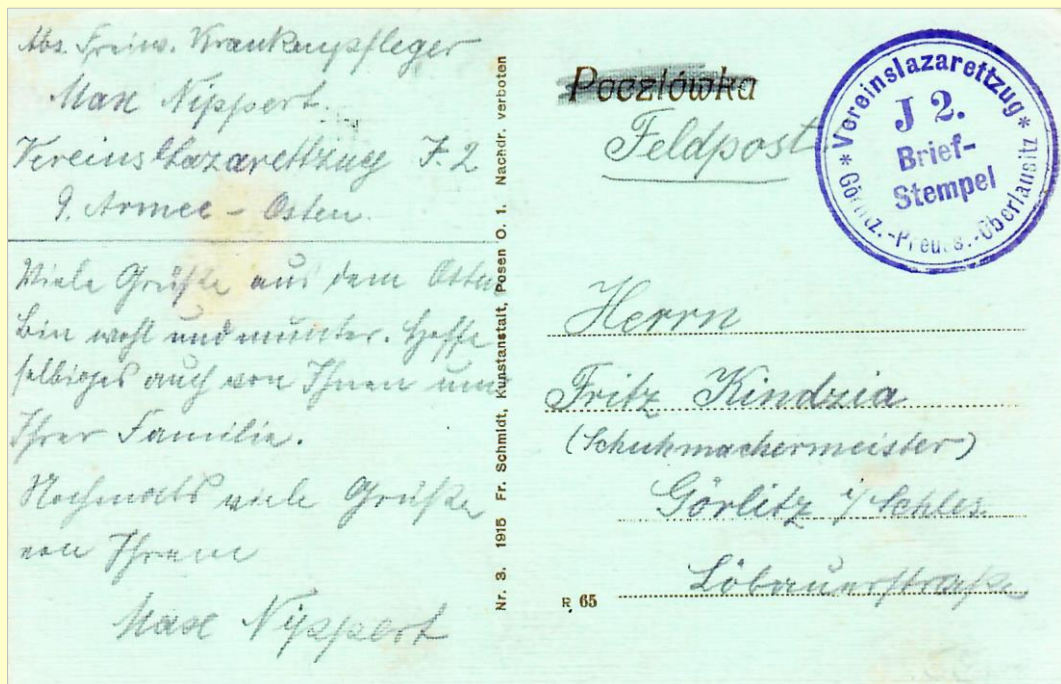 Abs. Freiw. Krankenpfleger
Max Nippert.
Vereinslazarettzug J. 2
9. Armee – Osten.
Viele Grüße aus dem Osten
Bin wohl und munter. Hoffe
selbiges auch von Ihnen und
Ihrer Familie.
Nochmals viele Grüße
von Ihrem
Max Nippert
Nr. 3. 1915 Fr. Schmidt, Kunstanstalt, Posen O. 1. Nachdr. verboten
Pocztówka
Feldpost
* Vereinslazarettzug *
J 2.
Brief-
Stempel
Görlitz.-Preuss.-Oberlausitz
Herrn
Fritz Kindzia
(Schuhmachermeister)
Görlitz i/Schles.
Löbauerstraße
R 65